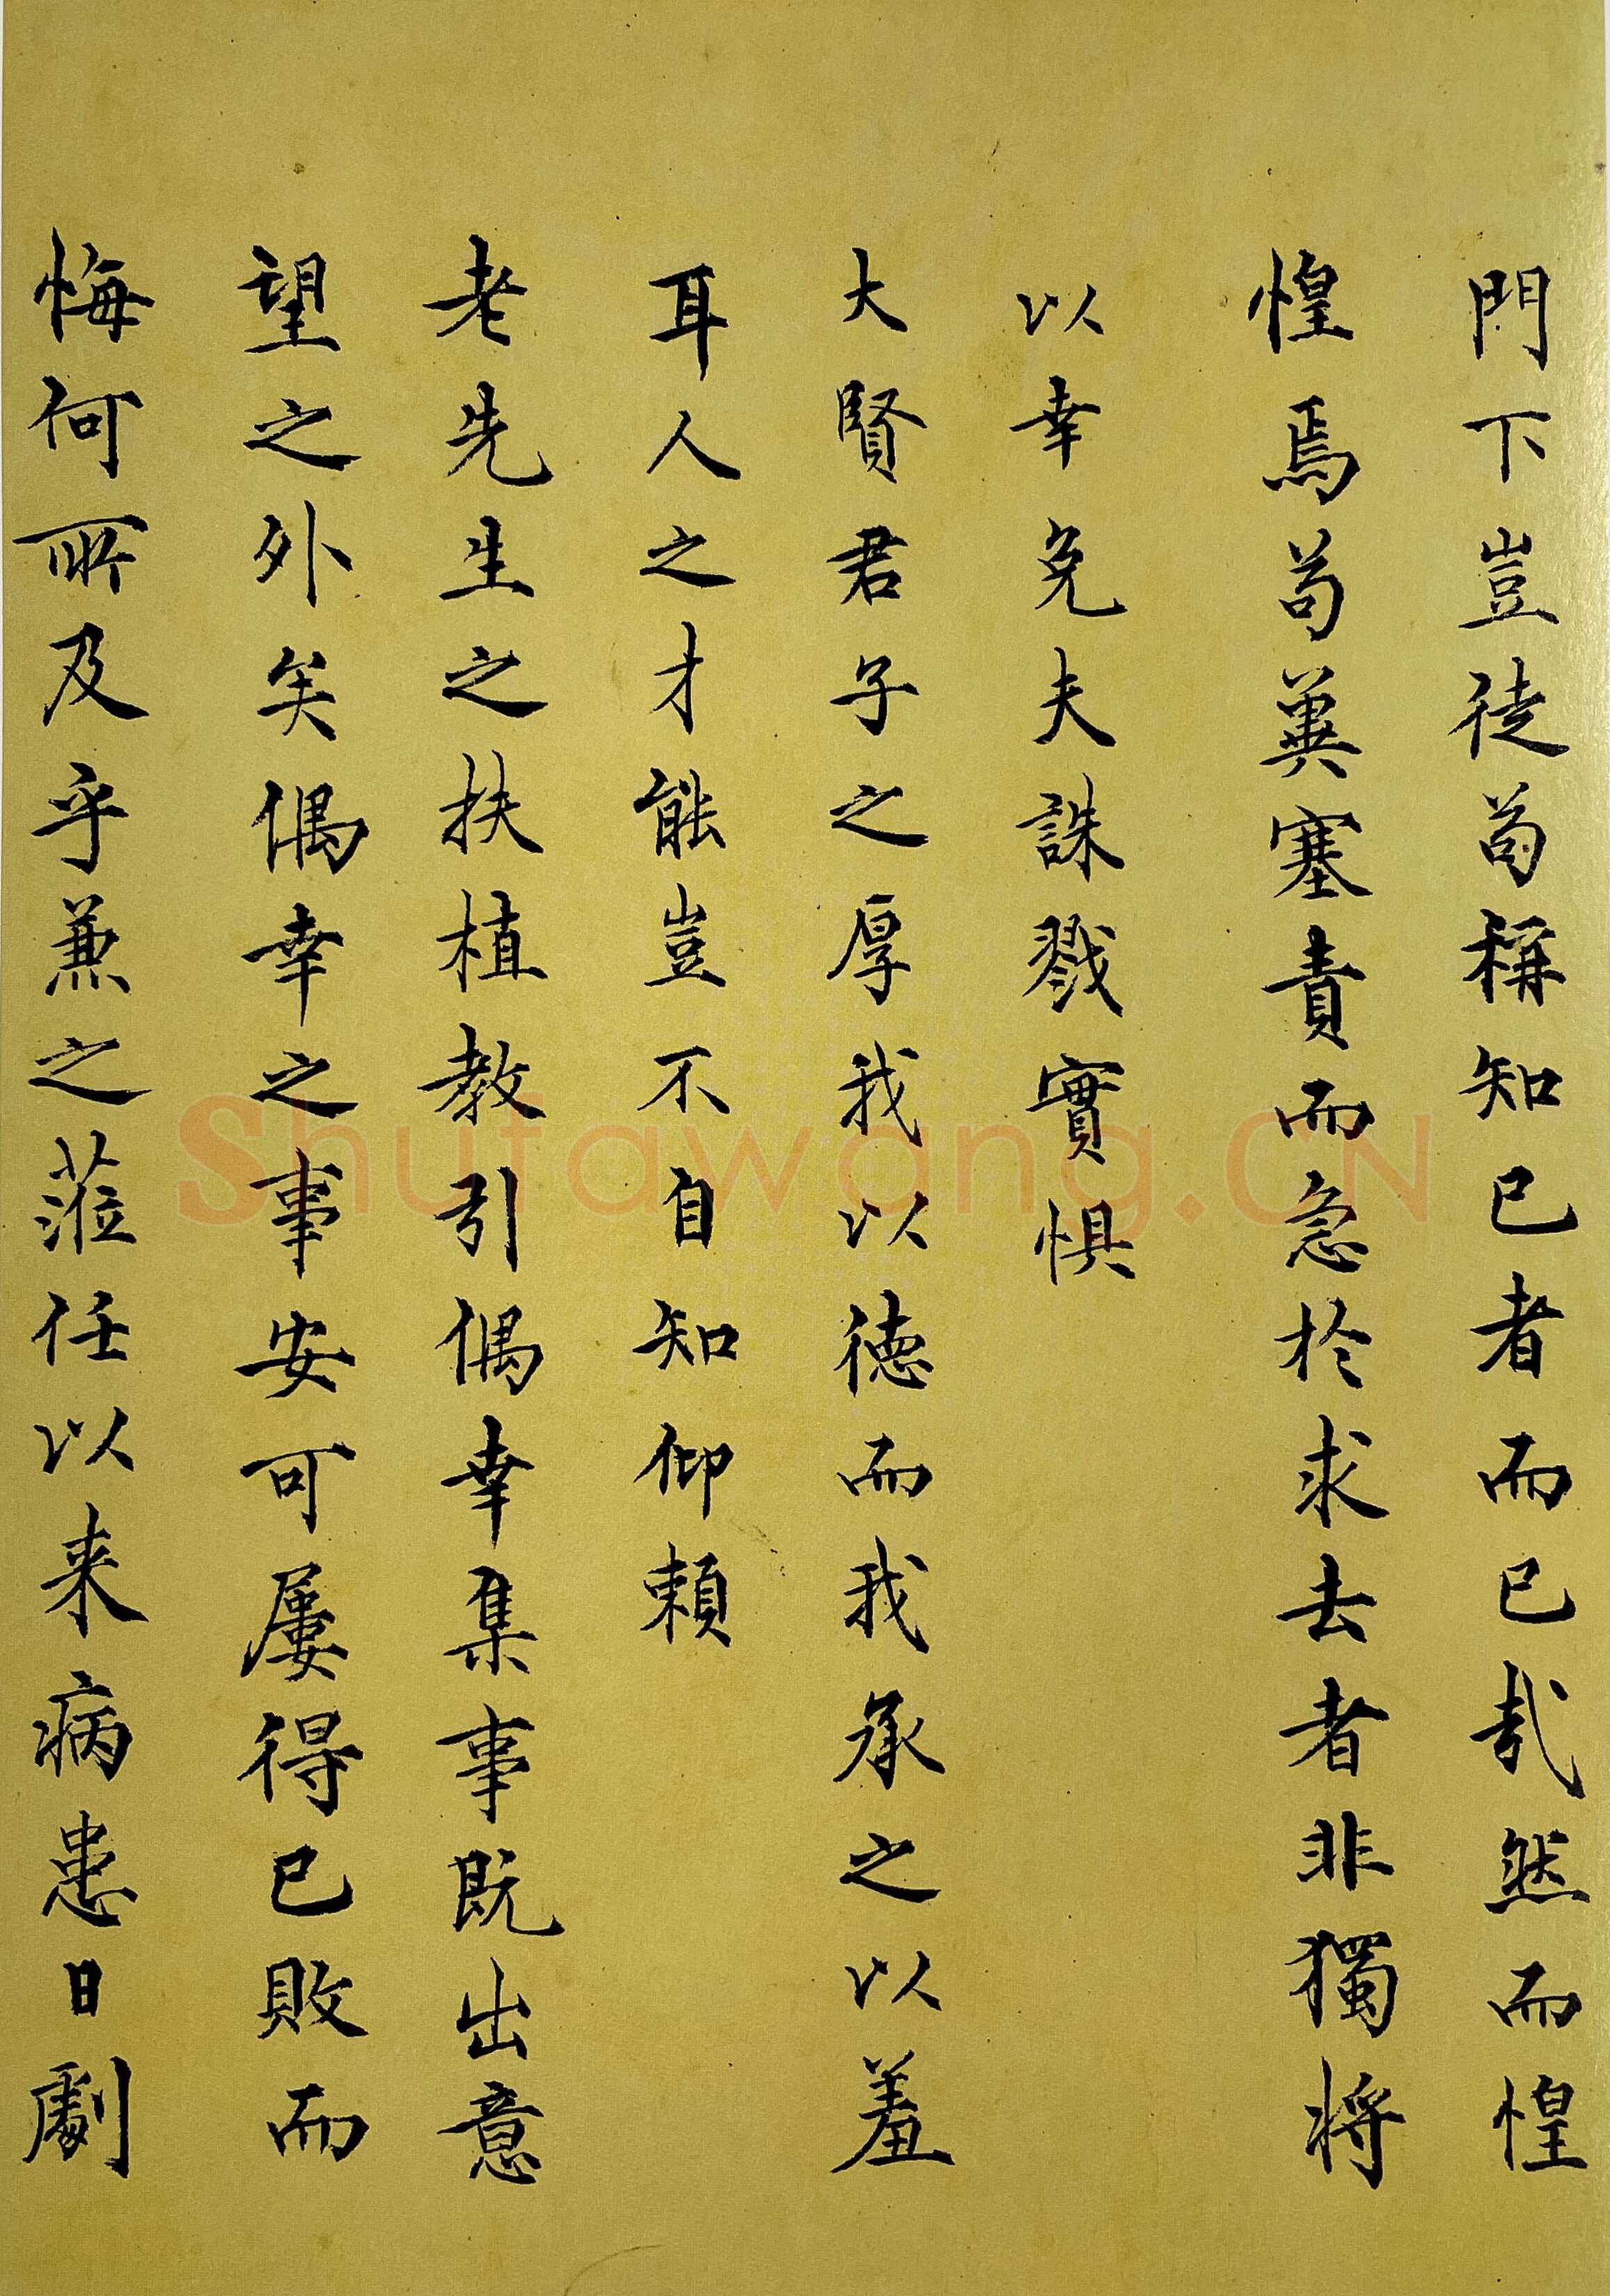 門下豈徒苟稱知己者而已哉然而惶
惶焉苟冀塞責而急於求去者非獨將
以幸免夫誅戮實懼
大賢君子之厚我以德而我承之以羞
耳人之才能豈不自知仰賴
老先生之扶植教引偶幸集事既出意
望之外矣偶幸之事安可屢得已敗而
悔何所及乎兼之蒞任以来病患日劇
Shufawang.CN